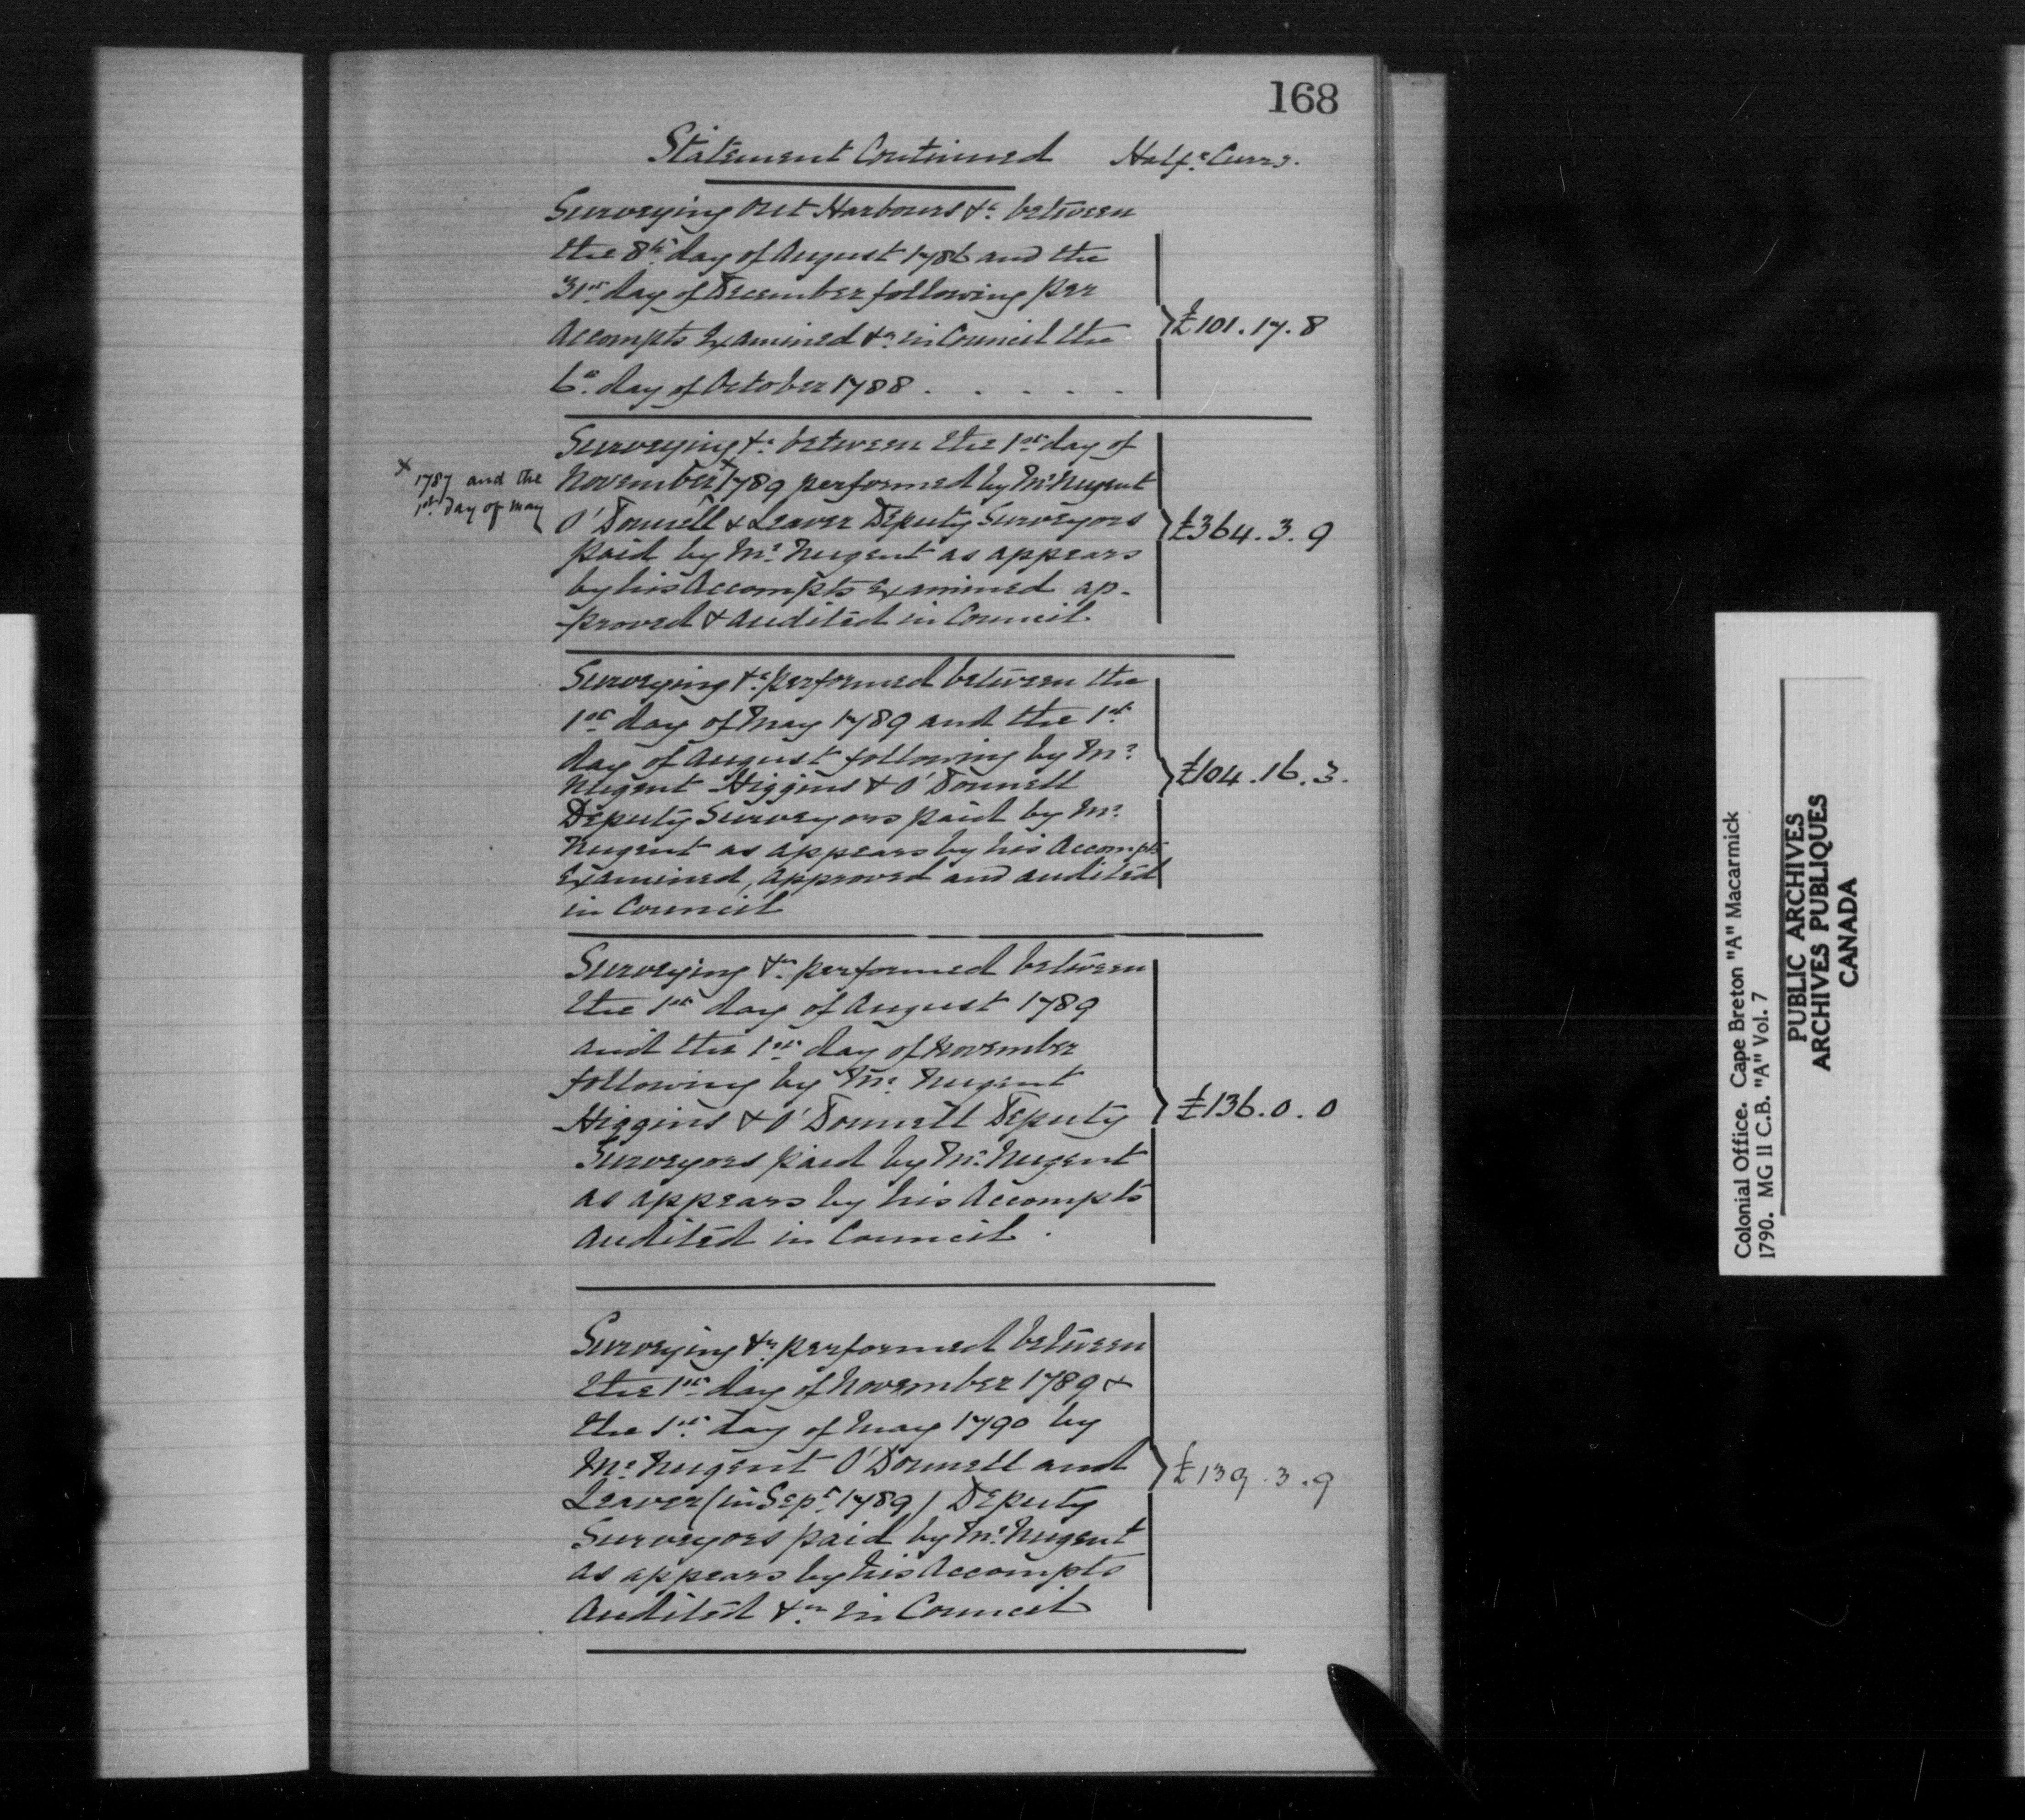 168
Statement Continued Halfx. Curry.
Surveying Out Harbours &c. between
the 8th. day of August 1786 and the
31st. day of December following per
Accompts Examined &c. in Council the
6th. day of October 1788 . . . . . .
£101.17.8
Surveying &c. between the 1st. day of
November x 1789 performed by Mr. Nugent
x 1787 and the
1st. Day of May
O'Donnell & Leaver Deputy Surveyors
£364.3.9
paid by Mr. Nugent as appears
by his Accompts Examined ap-
-proved & audited in Council.
Surveying &c. performed between the
1st day of May 1789 and the 1st.
day of August following by Mr.
Nugent Higgins & O'Donnell
£104.16.3.
Deputy Surveyors paid by Mr.
Nugent as appears by his Accompts
Examined, approved and audited
in Council
Surveying &c. performed between
the 1st. day of August 1789
and the 1st. day of November
following by Mr. Nugent
Higgins & O'Donnell Deputy
£136.0.0
Surveyors paid by Mr. Nugent
as appears by his Accompts
audited in Council.
Surveying &c. performed between
the 1st. day of November 1789 &
the 1st. day of May 1790 by
Mr. Nugent O'Donnell and
£139.3.9
Leaver (in Sepr. 1789) Deputy
Surveyors paid by Mr. Nugent
as appears by his Accompts
audited &c. in Council
Colonial Office. Cape Breton "A" Macarmick
1790. MG 11 C.B. "A" Vol. 7
PUBLIC ARCHIVES
ARCHIVES PUBLIQUES
CANADA